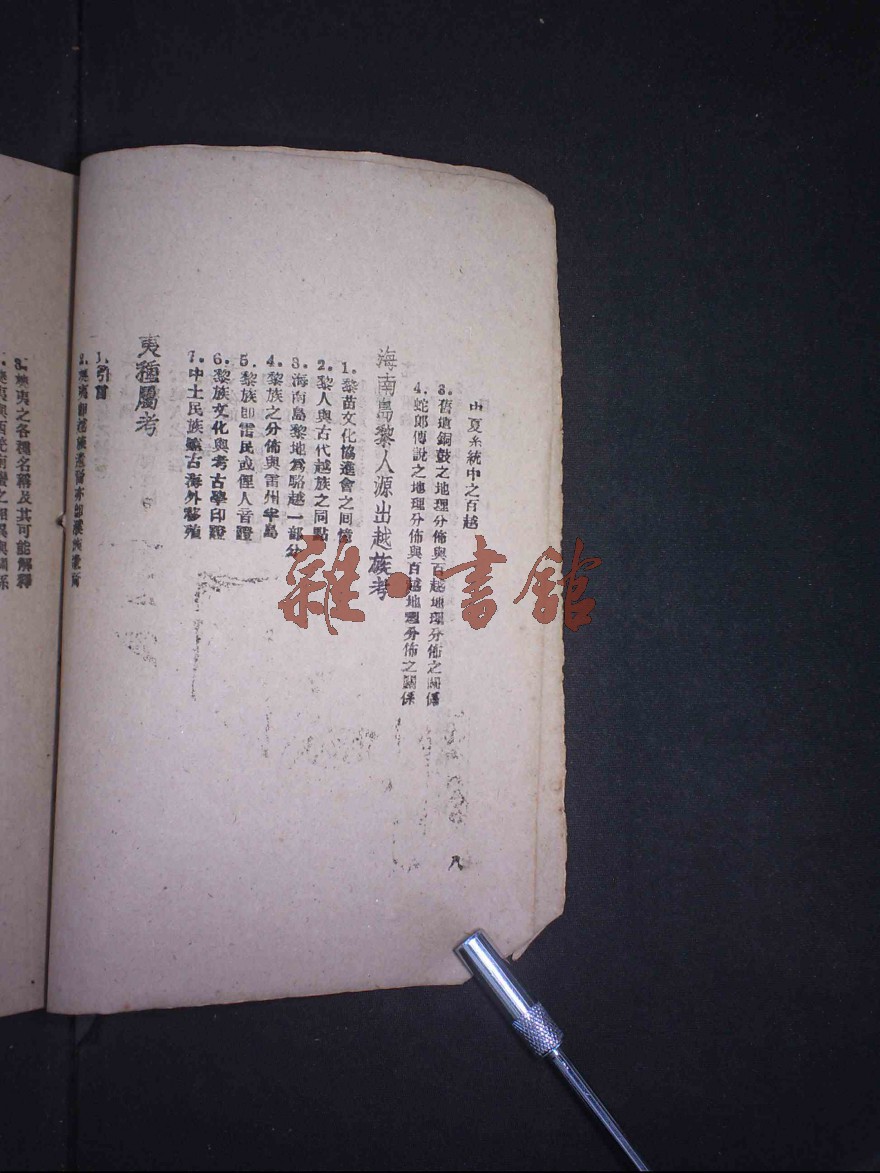 中夏系統中之百越
3. 舊遺銅鼓之地理分佈與百越地理分佈之關係
4. 蛇郎傳說之地理分佈與百越地理分佈之關係
海南島黎人源出越族考
1. 黎苗文化協進會之回憶
2. 黎人與古代越族之同點
3. 海南島黎地為駱越一部分
4. 黎族之分佈與雷州半島
5. 黎族即雷民或俚人音證
6. 黎族文化與考古學印證
7. 中土民族 古海外移殖
夷種屬考
1. 引言
3. 夷之各種名稱及其可能解釋
八
雜·書館